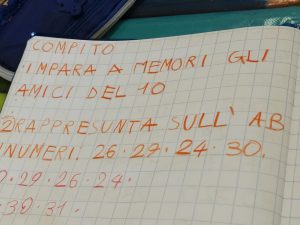 COMPITO
IMPARA A MEMORI GLI
AMICI DEL 10
2) RAPPRESUNTA SULL' AB
NUMERI. 26. 29. 24. 30.
29. 26. 24.
30. 31.